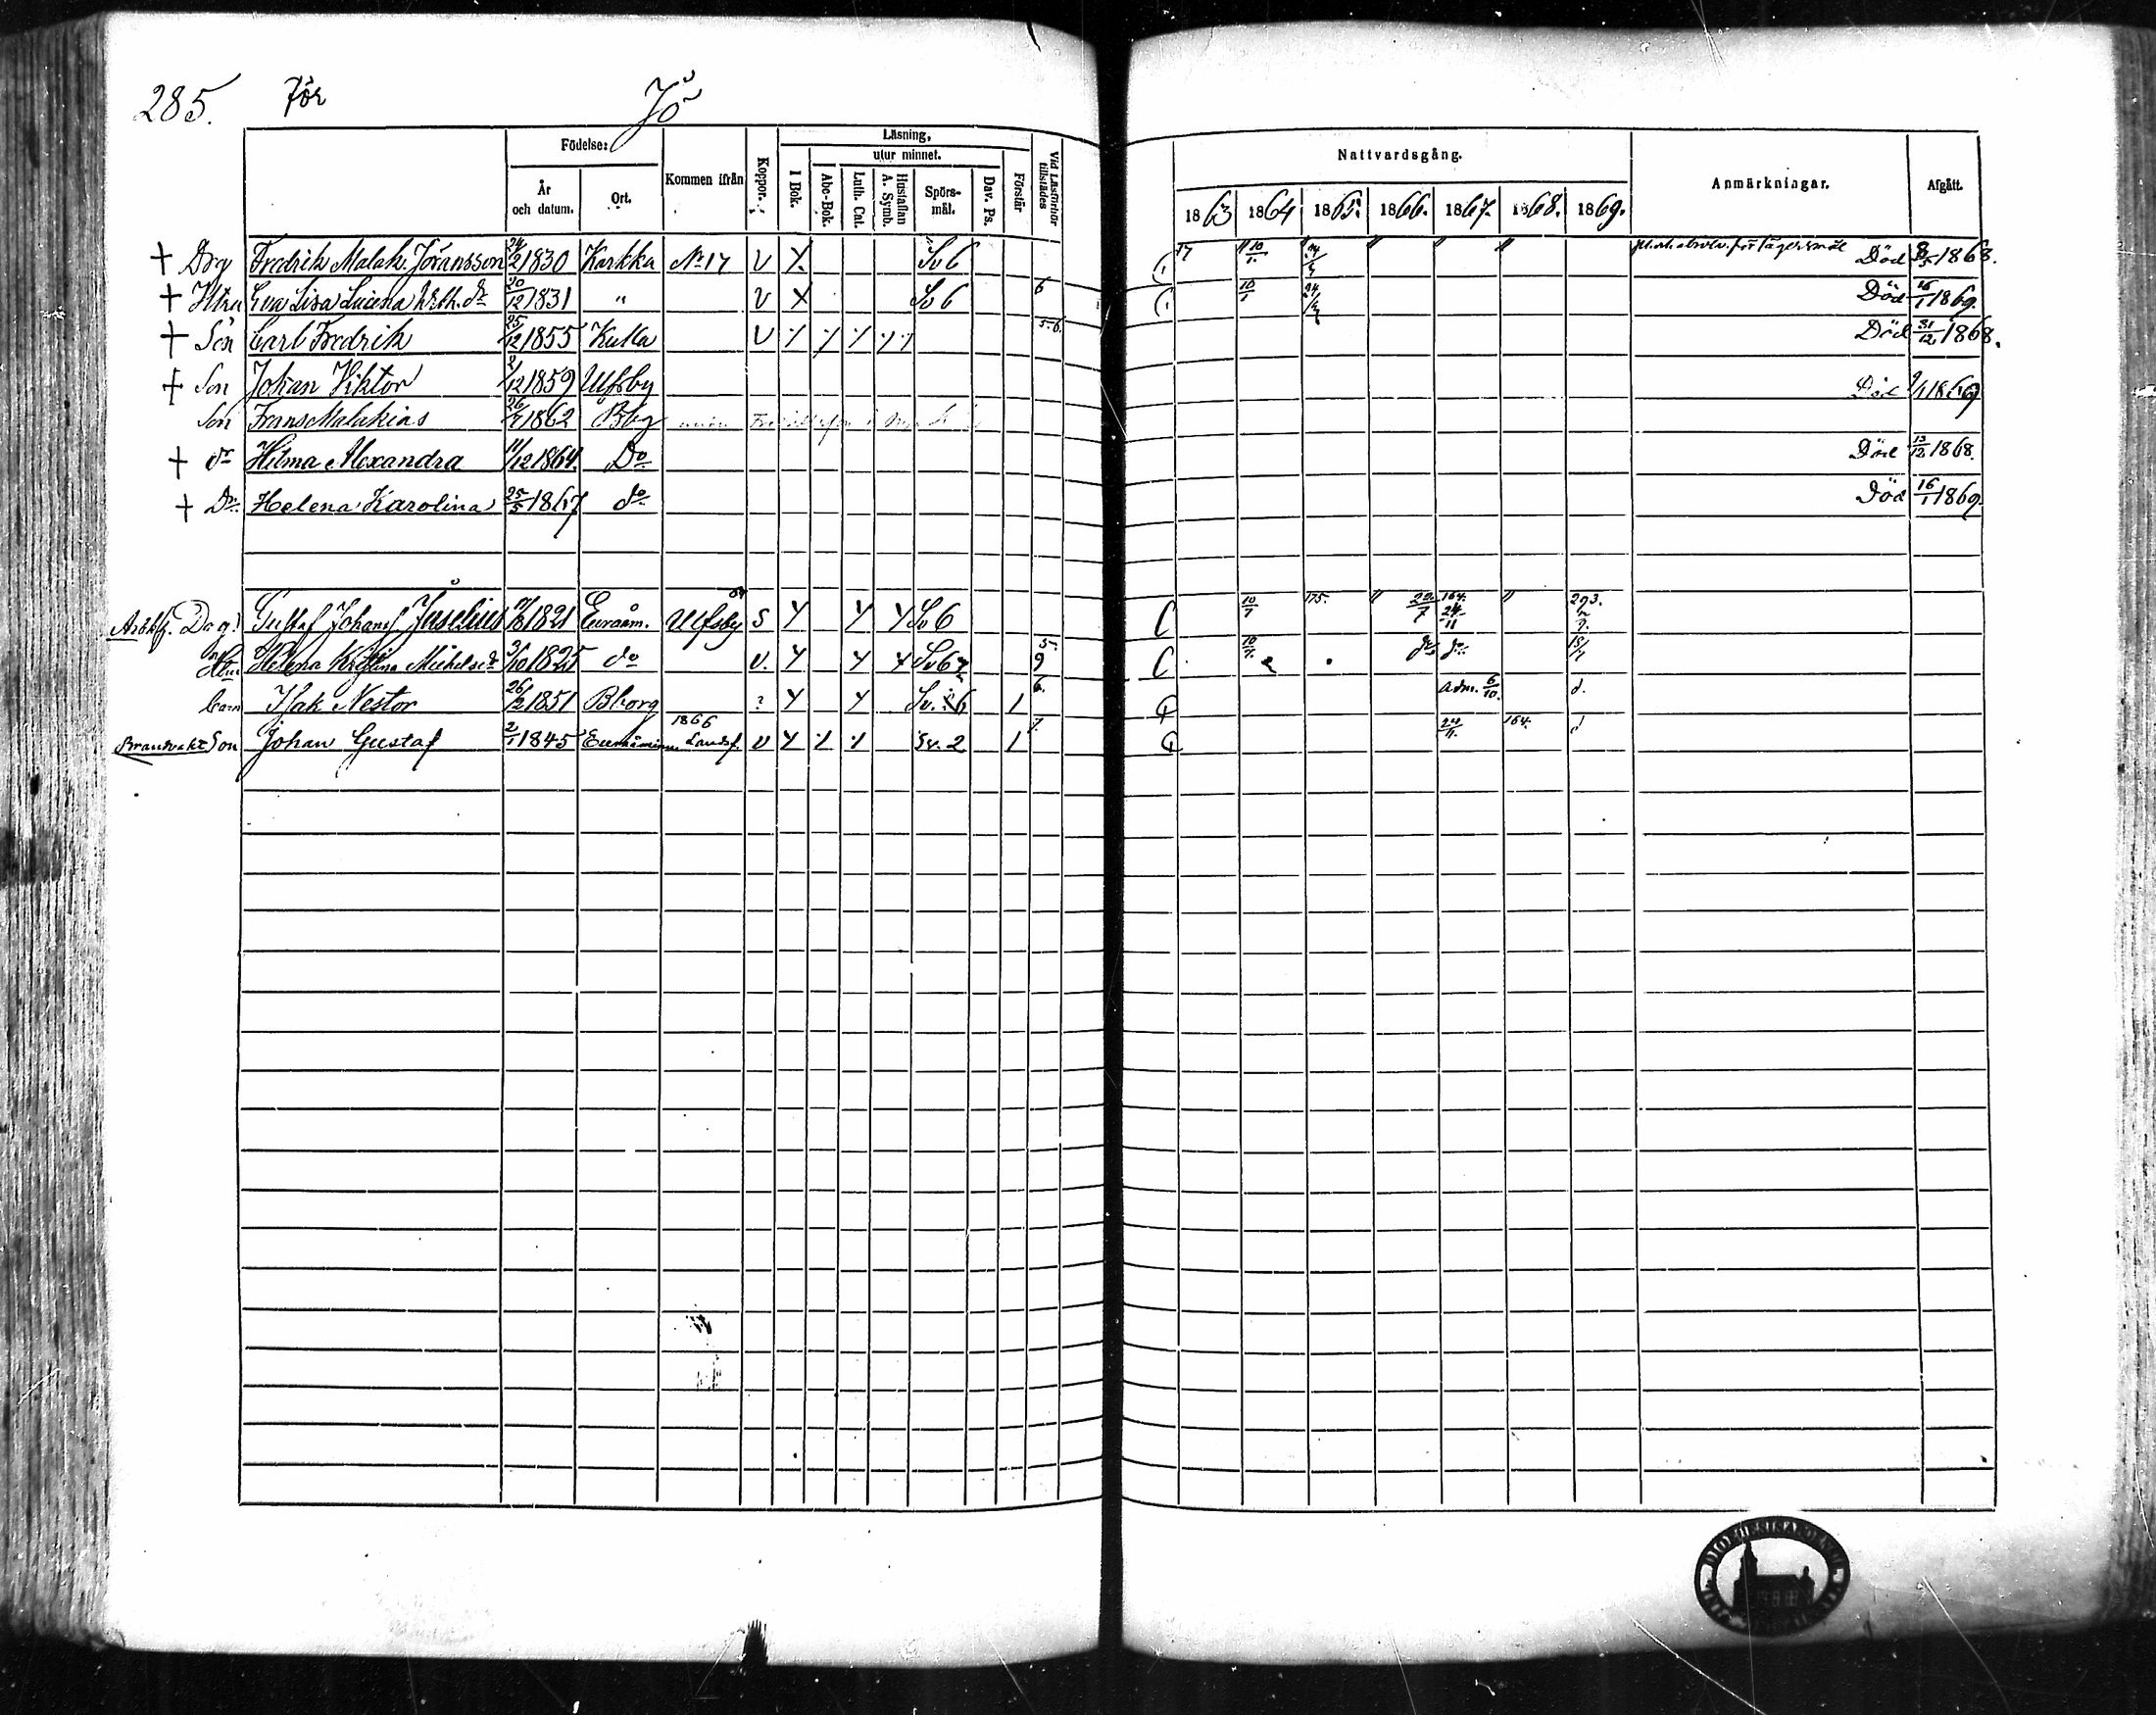 285. Jör Jö
Födelse: Läsning,
utur minnet. Nattvardsgång.
År och datum. Ort. Kommen ifrån Koppor. I Bok. Abc-Bok. Luth. Cat. Hustaflan A. Symb. Spörsmål. Dav. Ps. Förstår Vid Läsförhör tillstädes 1863 1864 1865. 1866. 1867. 1868. 1869. Anmärkningar. Afgått.
† Drg Fredrik Malak. Jöransson 24/2 1830 Karkka No 17 V Sv 6 17 10/1. Död 8/5 1868.
† Hstru Eva Lisa 20/12 1831 " V Sv 6 6 10/1 Död 16/1 1869.
† Son Carl Fredrik 25/12 1855 Kulla V 5.6. Död 31/12 1868.
† Son Johan Viktor 2/12 1859 Ulfsby Död 9/1 1869
Son Frans Malakias 26/7 1862 Bbg
† Dr Hilma Alexandra 11/12 1864. Do Död 13/12 1868.
† Dr Helena Karolina 25/5 1867 do Död 16/1 1869.
Gustaf Johans Juselius 1821 Euraåm. Ulfsby S Sv 6 10/7 175. 22/7 164. 24/11 293.
Helena Michelsdr 3/10 1825 do V. Sv 6 5. 9 10/7. do do
Barn Isak Nestor 26/2 1851 Bborg ? Sv. 6 1 6. adm. 6/10. d.
Brandvakt Son Johan Gustaf 2/1 1845 Euraåminne 1866 Landsf. V Sv. 2 1 7. 24/11. 164. d